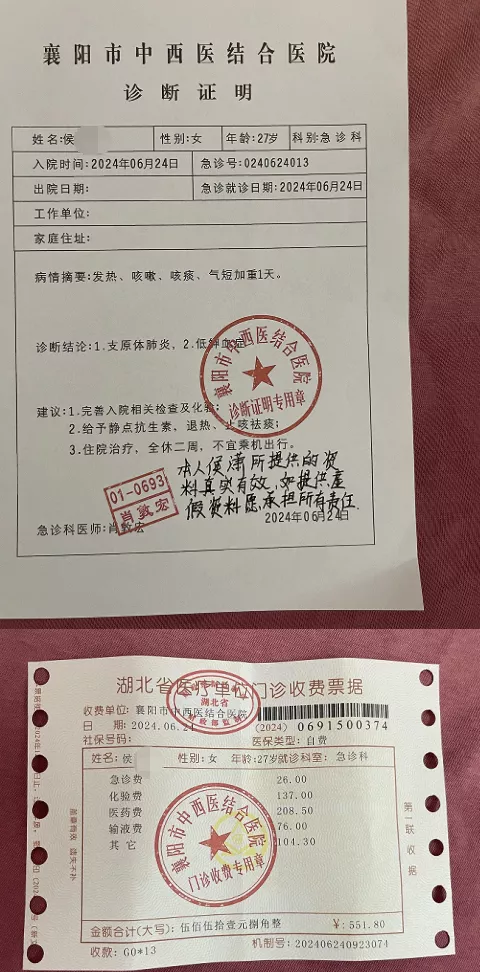 襄阳市中西医结合医院
诊断证明
姓名:侯 性别:女 年龄:27岁 科别:急诊科
入院时间:2024年06月24日 急诊号:0240624013
出院日期: 急诊就诊日期:2024年06月24日
工作单位:
家庭住址:
病情摘要:发热、咳嗽、咳痰、气短加重1天。
诊断结论:1.支原体肺炎,2.低钾血症
襄阳市中西医结合医院
诊断证明专用章
建议:1.完善入院相关检查及化验;
2.给予静点抗生素,退热、止咳祛痰;
3.住院治疗,全休二周,不宜乘机出行。
本人侯潇所提供的资
料真实有效,如提供虚
假资料愿承担所有责任.
01-0693
肖敦宏
急诊科医师:肖敦宏
2024年06月24日
湖北省医疗单位门诊收费票据
湖北省
收费单位:襄阳市中西医结合医院
日 期:2024.06.24 (2024) 0691500374
社保号码: 医保类型:自费
姓名:侯 性别:女 年龄:27岁就诊科室:急诊科
急诊费 26.00
化验费 137.00
医药费 208.50
输液费 76.00
其它 104.30
襄阳市中西医结合医院
门诊收费专用章
金额合计(大写):伍佰伍拾壹元捌角整 ¥:551.80
收款:G0*13 机制号:202406240923074
第一联 收据
盖章有效 遗失不补